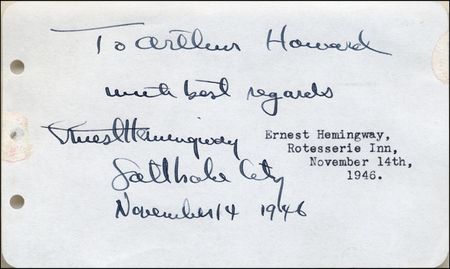 To Arthur Howard
with best regards
Ernest Hemingway
Salt Lake City
November 14 1946
Ernest Hemingway,
Rotesserie Inn,
November 14th,
1946.